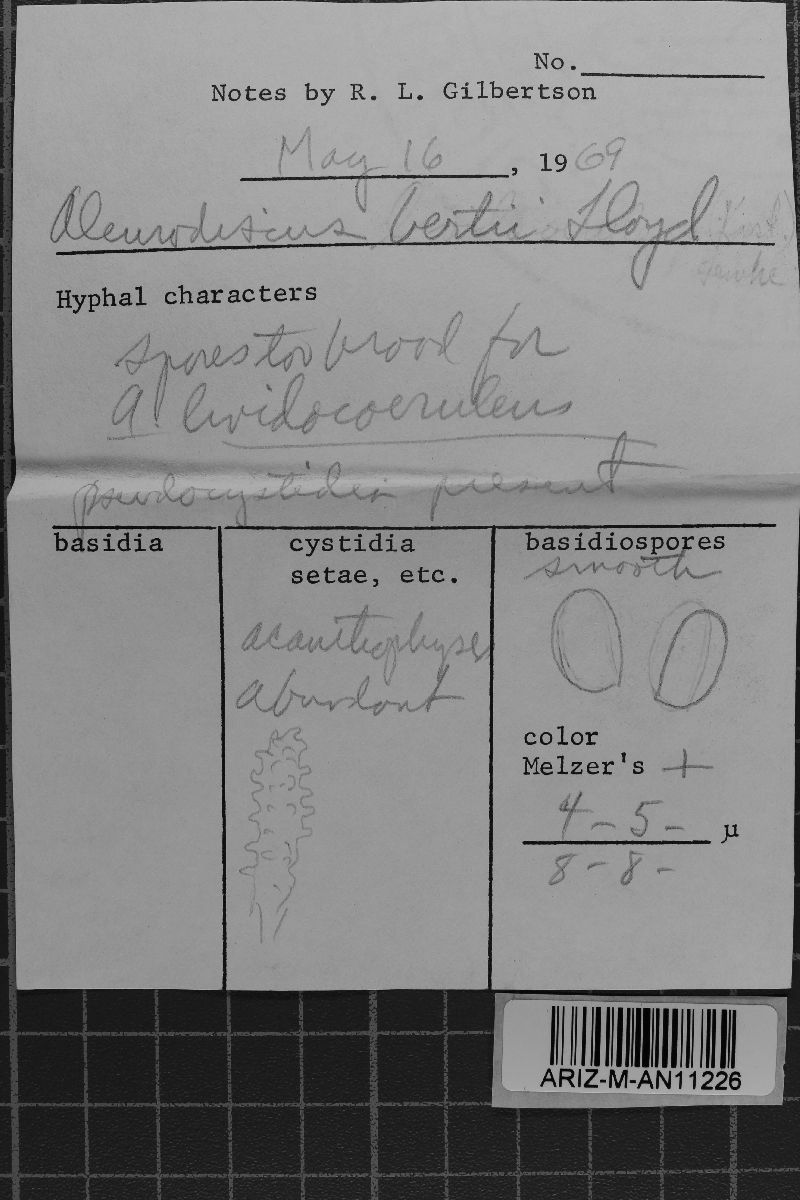 No.
Notes by R. L. Gilbertson
May 16, 1969
Aleurodiscus bertii Lloyd
Hyphal characters
spores too broad for
A. lividocoeruleus
pseudocystidia present
basidia
cystidia
setae, etc.
acanthophyses
abundant
basidiospores
smooth
color
Melzer's +
4 - 5 - µ
8 - 8 -
ARIZ-M-AN11226